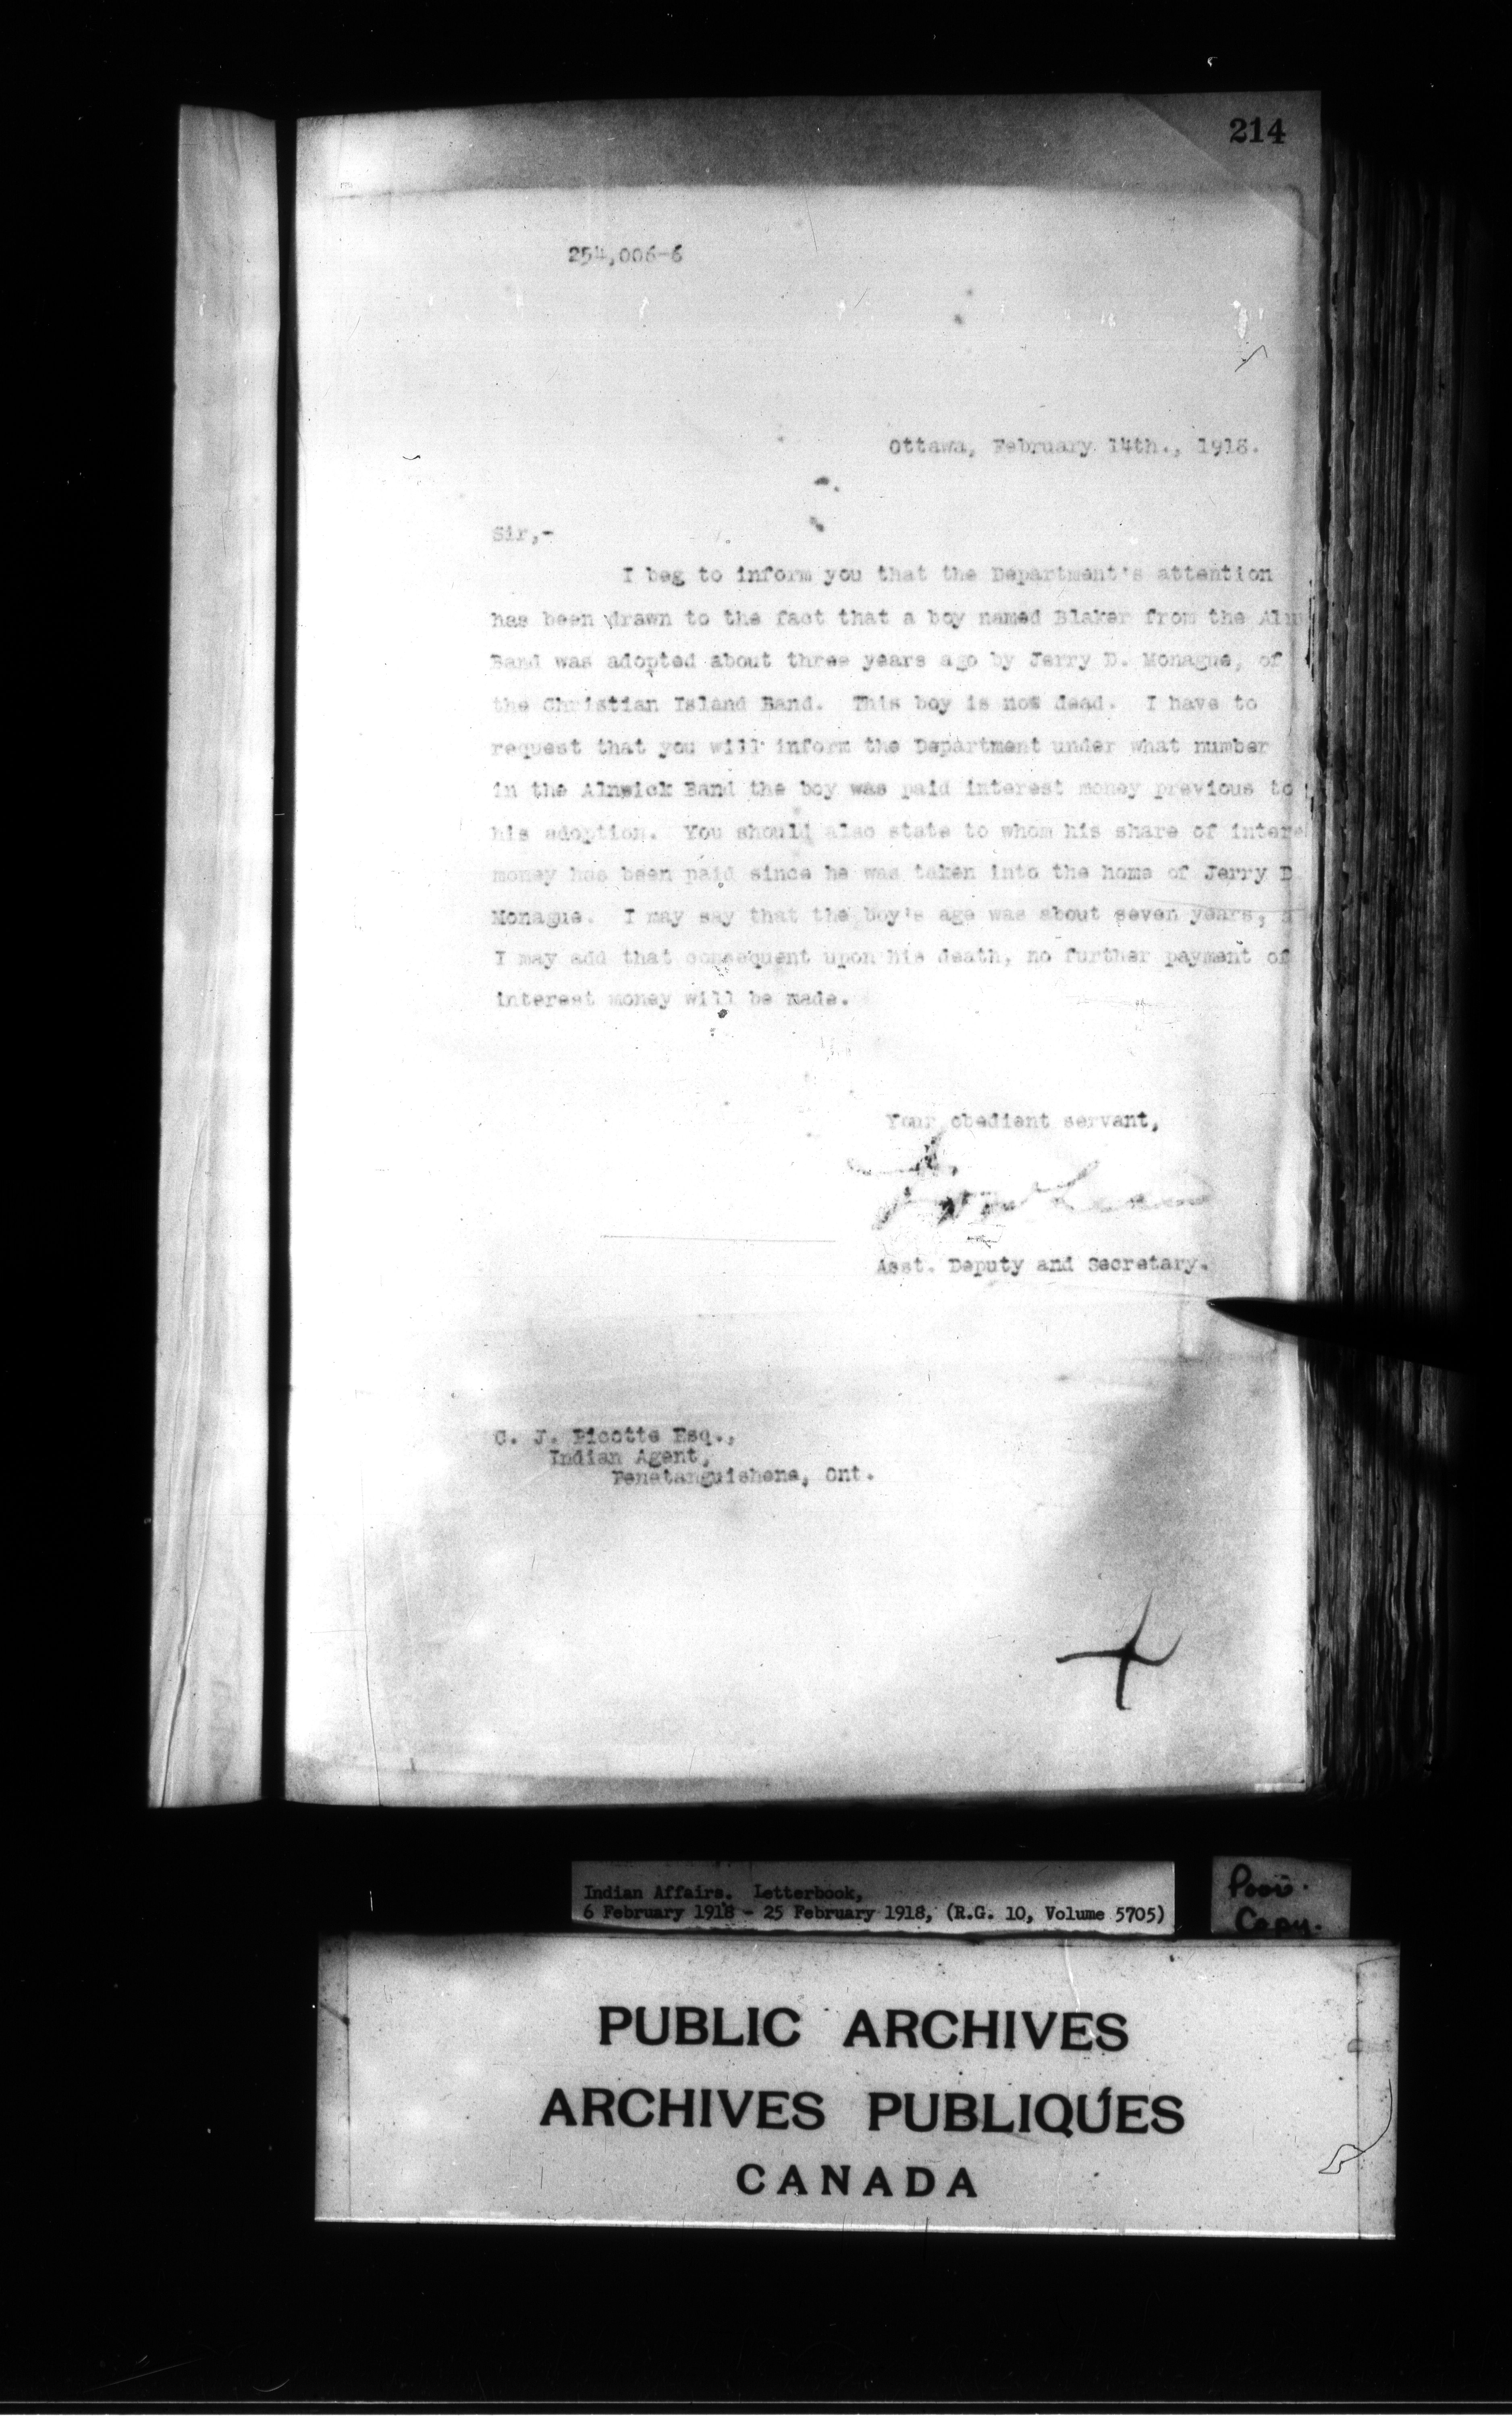 214
254,006-6
Ottawa, February 14th., 1918.
Sir,-
I beg to inform you that the Department's attention
has been drawn to the fact that a boy named Blaker from the Aln
Band was adopted about three years ago by Jerry D. Monague, of
the Christian Island Band. This boy is now dead. I have to
request that you will inform the Department under what number
in the Alnwick Band the boy was paid interest money previous to
his adoption. You should also state to whom his share of intere
money has been paid since he was taken into the home of Jerry D.
Monague. I may say that the boy's age was about seven years,
I may add that consequent upon his death, no further payment of
interest money will be made.
Your obedient servant,
Asst. Deputy and Secretary.
C. J. Picotte Esq.,
Indian Agent,
Penetanguishene, Ont.
Indian Affairs. Letterbook,
6 February 1918 - 25 February 1918, (R.G. 10, Volume 5705)
Poor
Copy.
PUBLIC ARCHIVES
ARCHIVES PUBLIQUES
CANADA